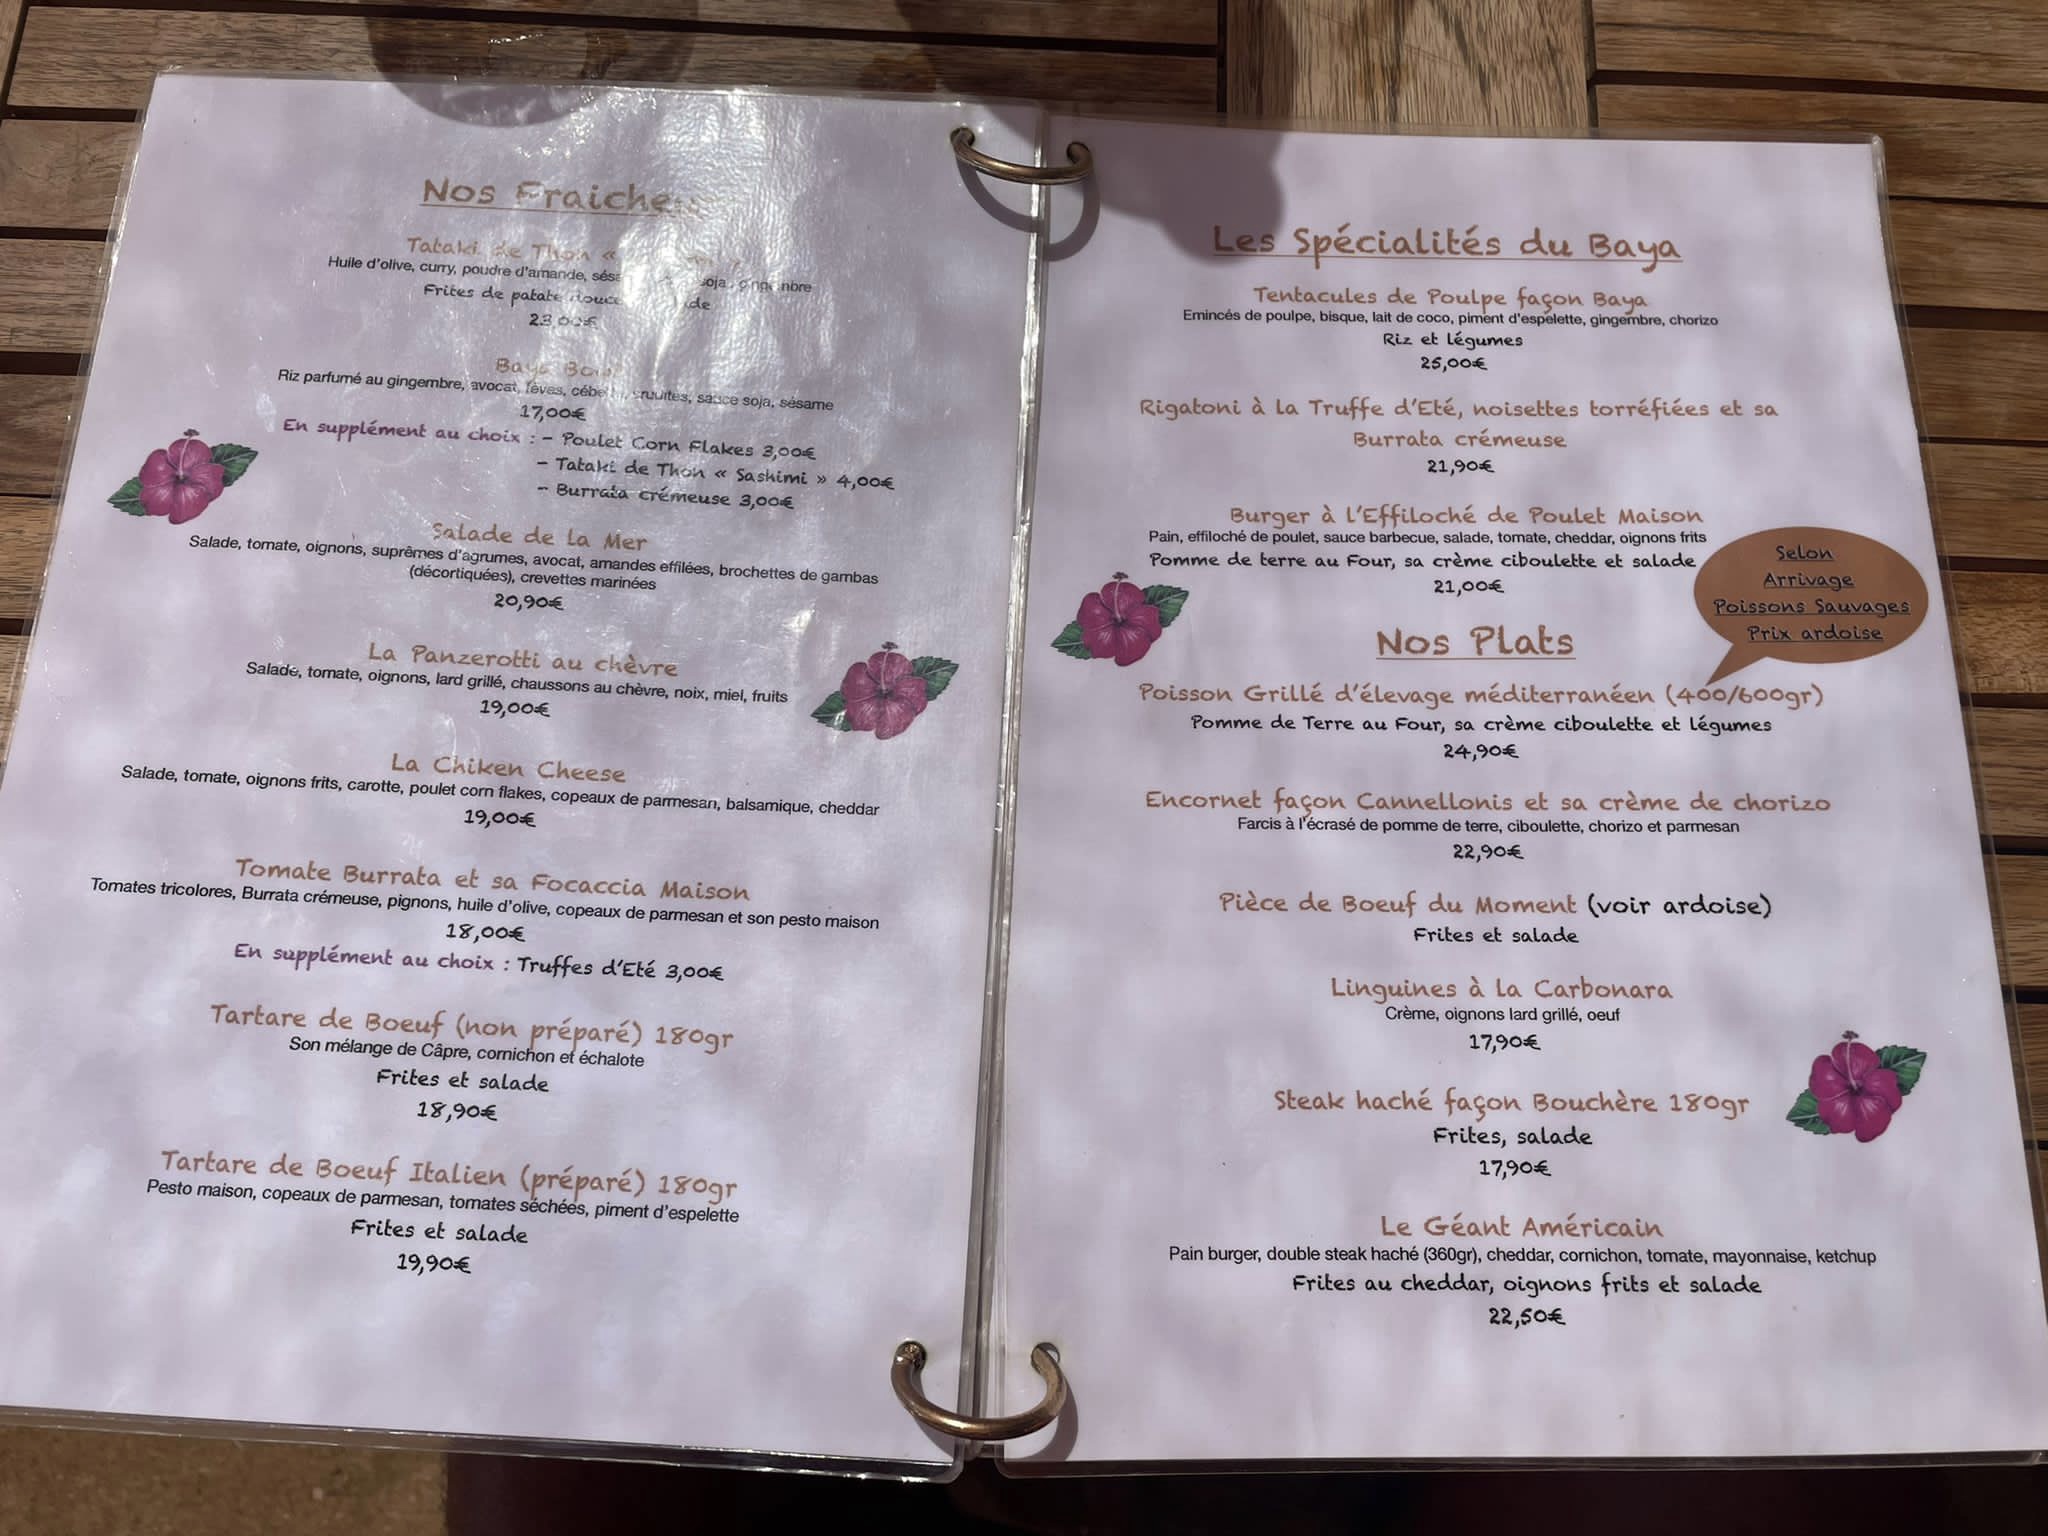 Nos
Tataki de Thon «
Huile d'olive, curry, poudre d'amande, soja, gingembre
Frites de patate douce
23,00€
Baya Bowl
Riz parfumé au gingembre, avocat, fèves, crudités, sauce soja, sésame
17,00€
En supplément au choix : - Poulet Corn Flakes 3,00€
- Tataki de Thon « Sashimi » 4,00€
- Burrata crémeuse 3,00€
Salade de la Mer
Salade, tomate, oignons, suprêmes d'agrumes, avocat, amandes effilées, brochettes de gambas
(décortiquées), crevettes marinées
20,90€
La Panzerotti au chèvre
Salade, tomate, oignons, lard grillé, chaussons au chèvre, noix, miel, fruits
19,00€
La Chiken Cheese
Salade, tomate, oignons frits, carotte, poulet corn flakes, copeaux de parmesan, balsamique, cheddar
19,00€
Tomate Burrata et sa Focaccia Maison
Tomates tricolores, Burrata crémeuse, pignons, huile d'olive, copeaux de parmesan et son pesto maison
18,00€
En supplément au choix : Truffes d'Eté 3,00€
Tartare de Boeuf (non préparé) 180gr
Son mélange de Câpre, cornichon et échalote
Frites et salade
18,90€
Tartare de Boeuf Italien (préparé) 180gr
Pesto maison, copeaux de parmesan, tomates séchées, piment d'espelette
Frites et salade
19,90€
Les Spécialités du Baya
Tentacules de Poulpe façon Baya
Emincés de poulpe, bisque, lait de coco, piment d'espelette, gingembre, chorizo
Riz et légumes
25,00€
Rigatoni à la Truffe d'Eté, noisettes torréfiées et sa
Burrata crémeuse
21,90€
Burger à l'Effiloché de Poulet Maison
Pain, effiloché de poulet, sauce barbecue, salade, tomate, cheddar, oignons frits
Pomme de terre au Four, sa crème ciboulette et salade
21,00€
Selon
Arrivage
Poissons Sauvages
Prix ardoise
Nos Plats
Poisson Grillé d'élevage méditerranéen (400/600gr)
Pomme de Terre au Four, sa crème ciboulette et légumes
24,90€
Encornet façon Cannellonis et sa crème de chorizo
Farcis à l'écrasé de pomme de terre, ciboulette, chorizo et parmesan
22,90€
Pièce de Boeuf du Moment (voir ardoise)
Frites et salade
Linguines à la Carbonara
Crème, oignons lard grillé, oeuf
17,90€
Steak haché façon Bouchère 180gr
Frites, salade
17,90€
Le Géant Américain
Pain burger, double steak haché (360gr), cheddar, cornichon, tomate, mayonnaise, ketchup
Frites au cheddar, oignons frits et salade
22,50€